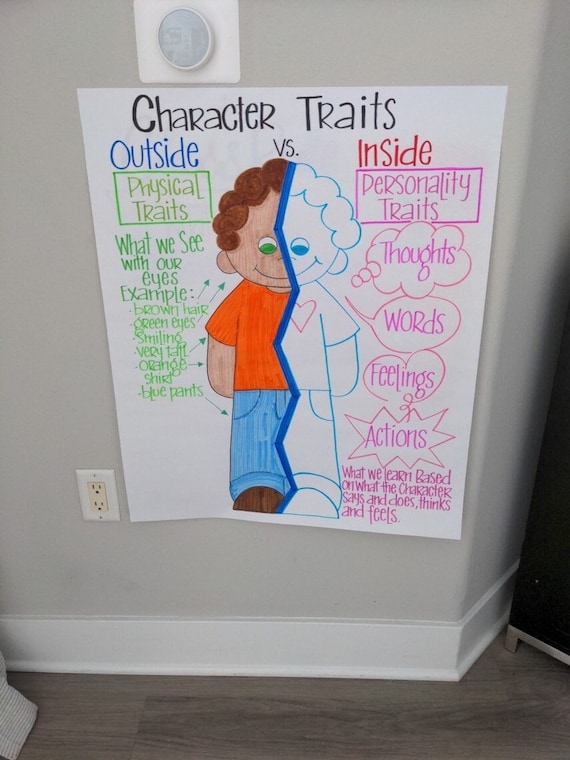 Character Traits
Outside vs. Inside
Physical
Traits
What we See
with our
eyes
Example:
-brown hair
-green eyes
-Smiling
-very tall
-orange
shirt
-blue pants
Personality
Traits
Thoughts
Words
Feelings
Actions
What we learn Based
on what the Character
says and does, thinks
and feels.